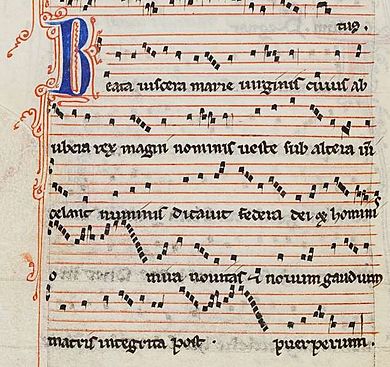 tus.
Beata uiscera marie uirginis cuius ab
ubera rex magni nominis ueste sub altera uim
celans numinis dictauit federa dei et hominis
o mira nouitas & nouum gaudium
matris integrita post. puerperium.